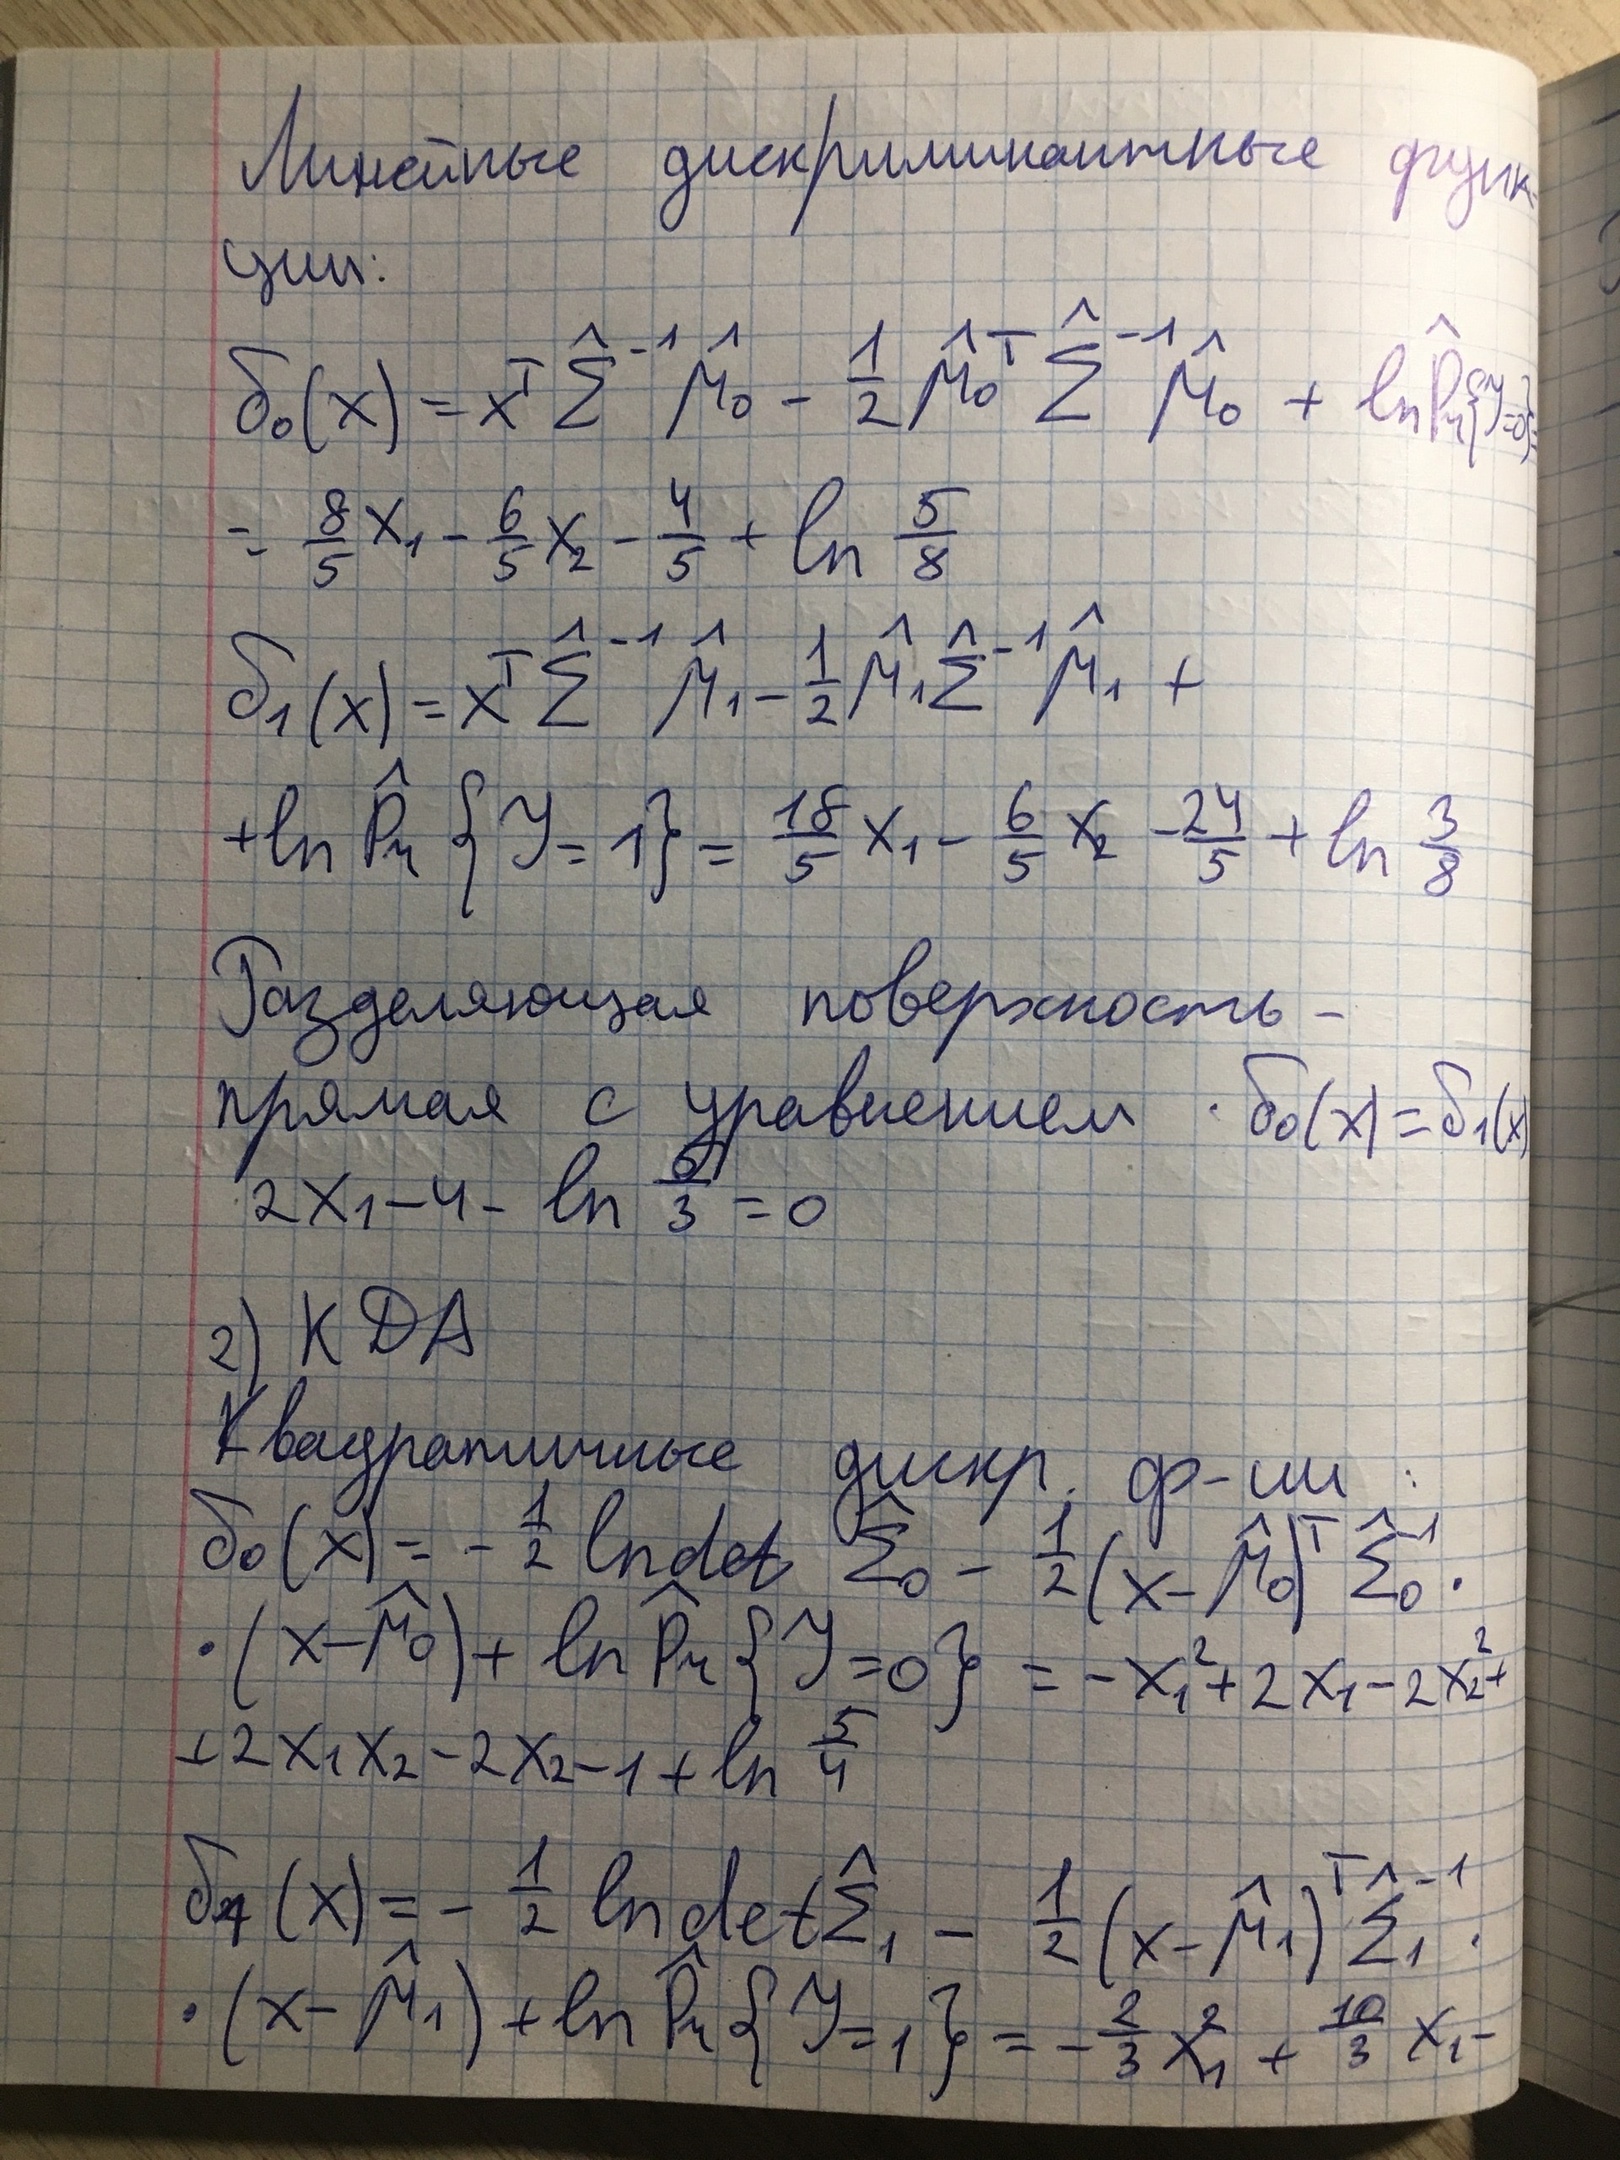 Линейные дискриминантные функ-
ции:
δ₀(x) = xᵀ Σ̂⁻¹ μ̂₀ - 1/2 μ̂₀ᵀ Σ̂⁻¹ μ̂₀ + ln P̂r{Y=0} =
= 8/5 x₁ - 6/5 x₂ - 4/5 + ln 5/8
δ₁(x) = xᵀ Σ̂⁻¹ μ̂₁ - 1/2 μ̂₁ Σ̂⁻¹ μ̂₁ +
+ ln P̂r {Y=1} = 18/5 x₁ - 6/5 x₂ - 24/5 + ln 3/8
Разделяющая поверхность -
прямая с уравнением δ₀(x) = δ₁(x)
2x₁ - 4 - ln 5/3 = 0
2) КДА
Квадратичные дискр. ф-ии :
δ₀(x) = - 1/2 ln det Σ̂₀ - 1/2 (x - μ̂₀)ᵀ Σ̂₀⁻¹ ·
· (x - μ̂₀) + ln P̂r {Y=0} = -x₁² + 2x₁ - 2x₂² +
+ 2x₁x₂ - 2x₂ - 1 + ln 5/4
δ₁(x) = - 1/2 ln det Σ̂₁ - 1/2 (x - μ̂₁)ᵀ Σ̂₁⁻¹ ·
· (x - μ̂₁) + ln P̂r {Y=1} = - 2/3 x₁² + 10/3 x₁ -